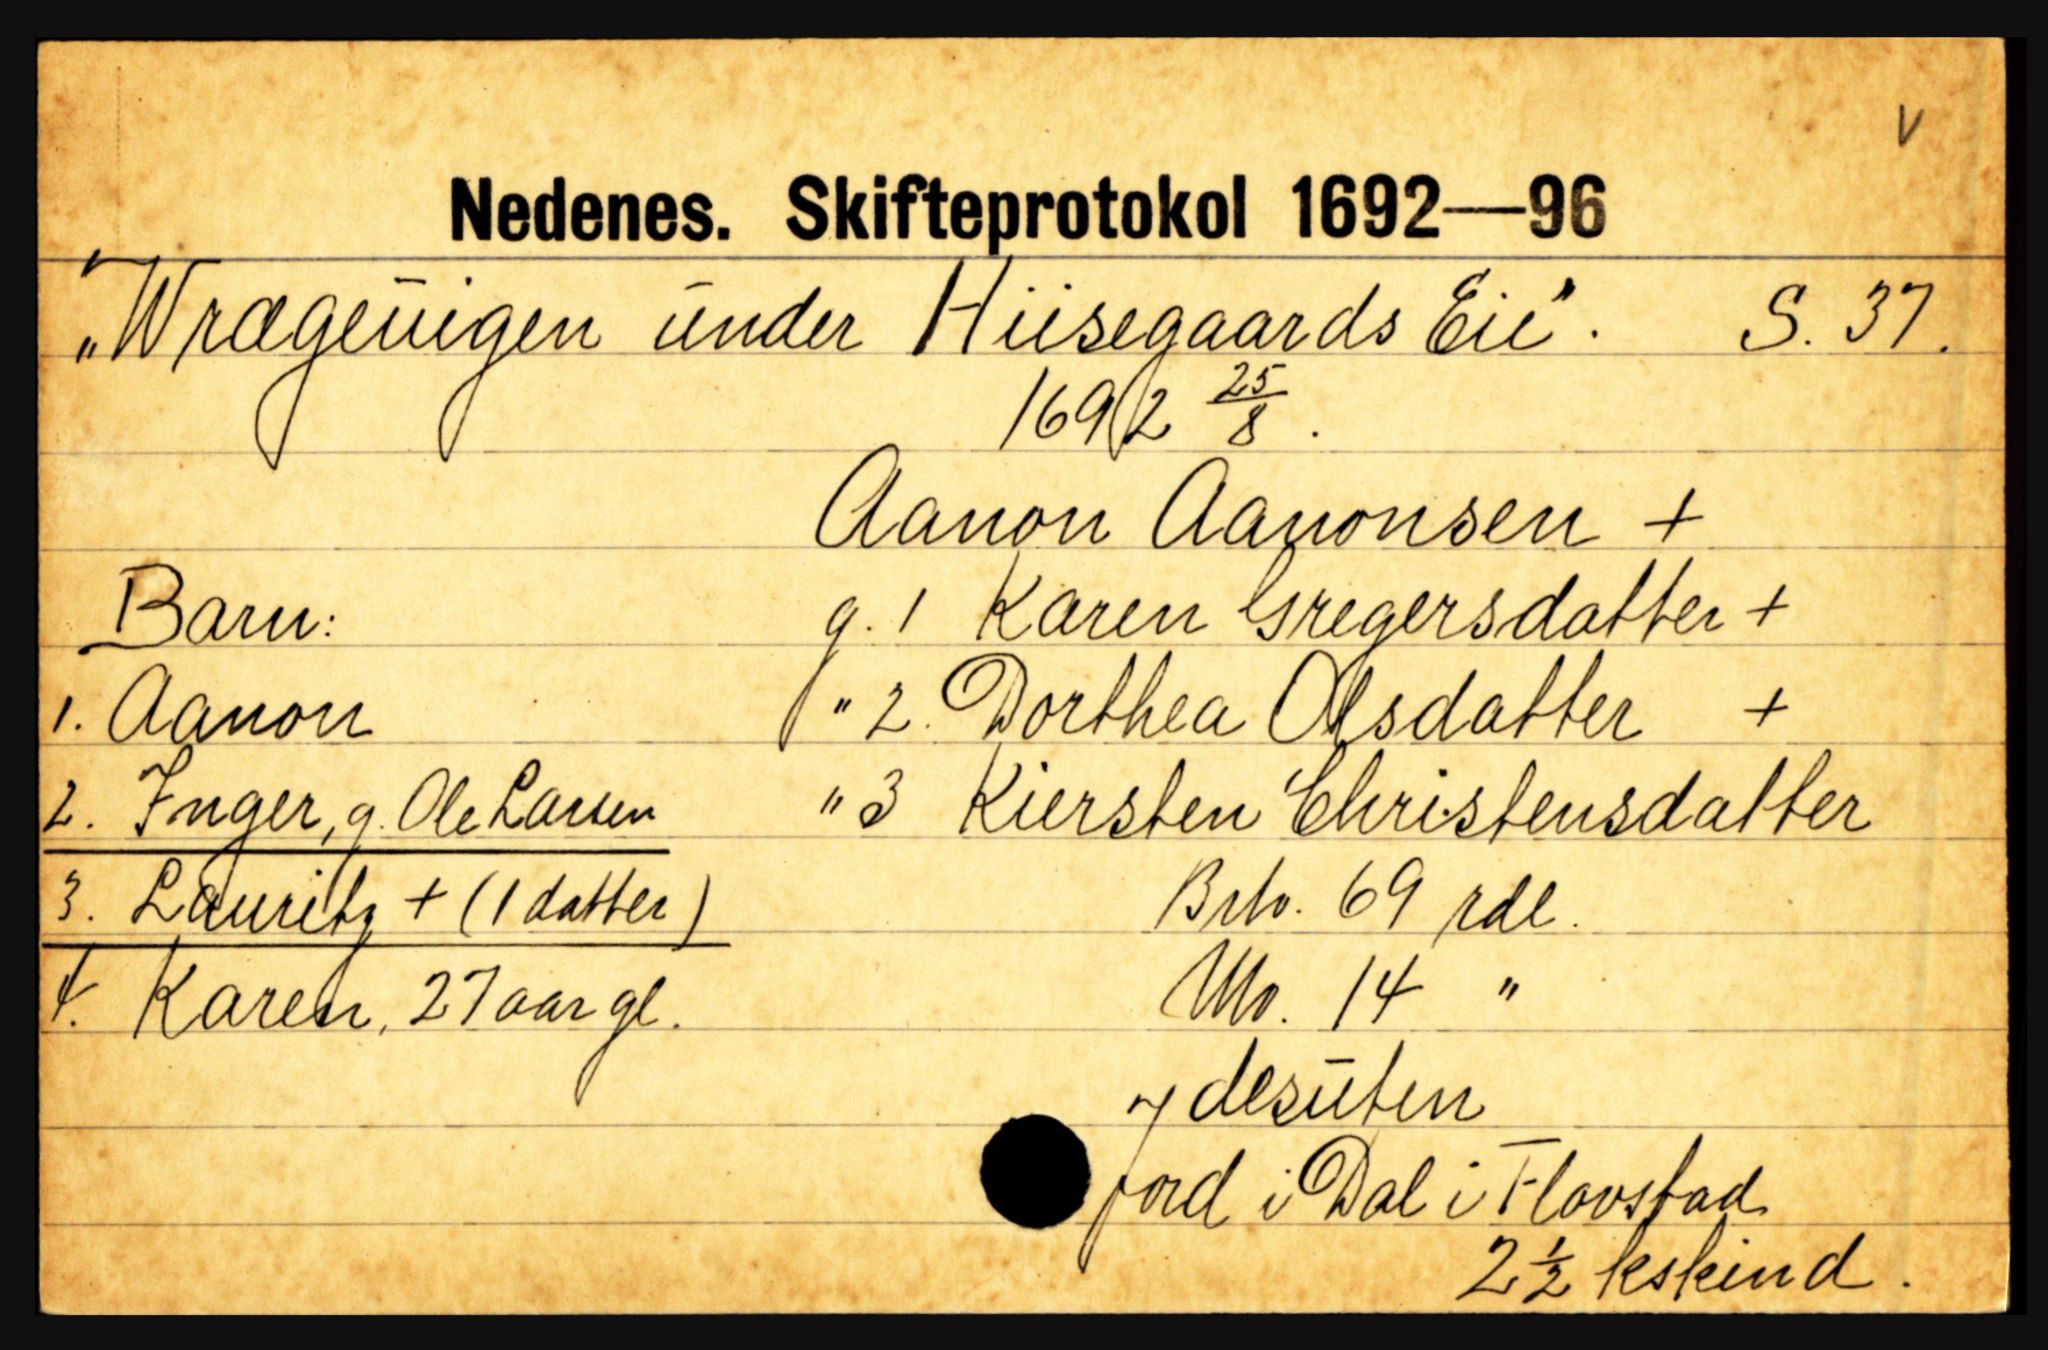 V
Nedenes. Skifteprotokol 1692—96
"Wrægeuigen under Hiisegaards Eie". S. 37.
1692 25/8.
Aanon Aanonsen +
Barn:
g. 1 Karen Gregersdatter +
1. Aanon
" 2. Dorthea Olsdatter +
2. Inger, g. Ole Larsen
" 3 Kiersten Christensdatter
3. Lauritz + (1 datter)
Brto. 69 rdl.
4. Karen, 27 aar gl.
Nto. 14 "
desuten
jord i Dal i Flovstad
2 1/2 kskind.